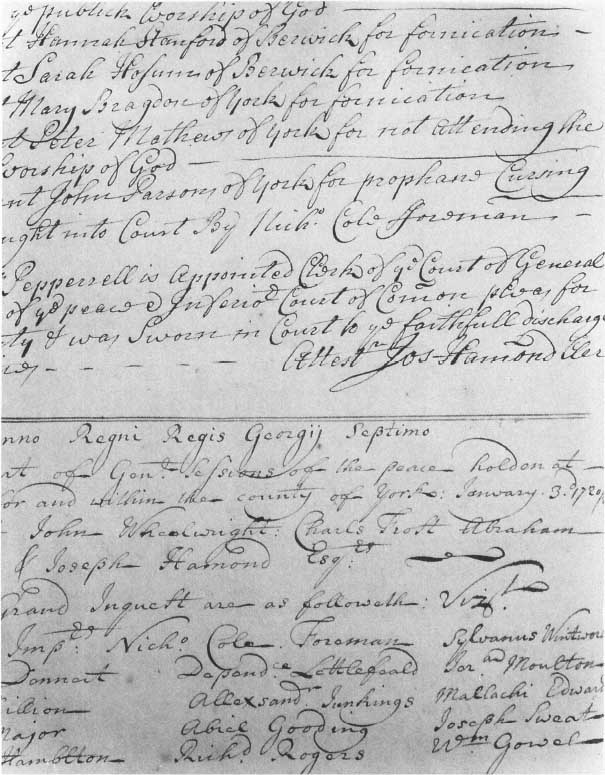 ye publick worship of God
t Hannah Hanford of Berwick for fornication
t Sarah Hosum of Berwick for fornication
Mary Bragdon of York for fornication
t Peter Mathews of York for not attending the
worship of God
nt John Parsons of York for prophane Cursing
ught into Court By Nicho. Cole Foreman
Pepperrell is Appointed Clerk of ye Court of General
of ye peace & Inferior Court of Comon pleas for
ty & was Sworn in Court to ye faithfull discharge
Attest Jos Hamond Cler
nno Regni Regis Georgij Septimo
rt of Genll Sessions of the peace holden at
for and within the county of York: January. 3. 1720/
John Wheelwright: Charls Frost Abraham
& Joseph Hamond Esqrs
Grand Inquest are as followeth: Vizt.
Imprs Nicho. Cole Foreman Sylvanus Wintwor
Donnert Dependce Lettlefeald Jorad Moulton
illion Allexsandr Junkings Mallachi Edward
Major Abiel Gooding Joseph Sweat
Hamblton Richd Rogers Wm Gowel